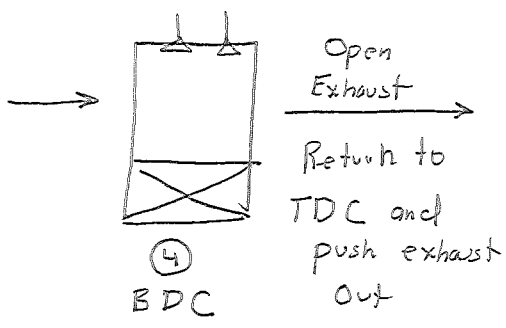 Open
Exhaust
Return to
TDC and
push exhaust
Out
4
BDC